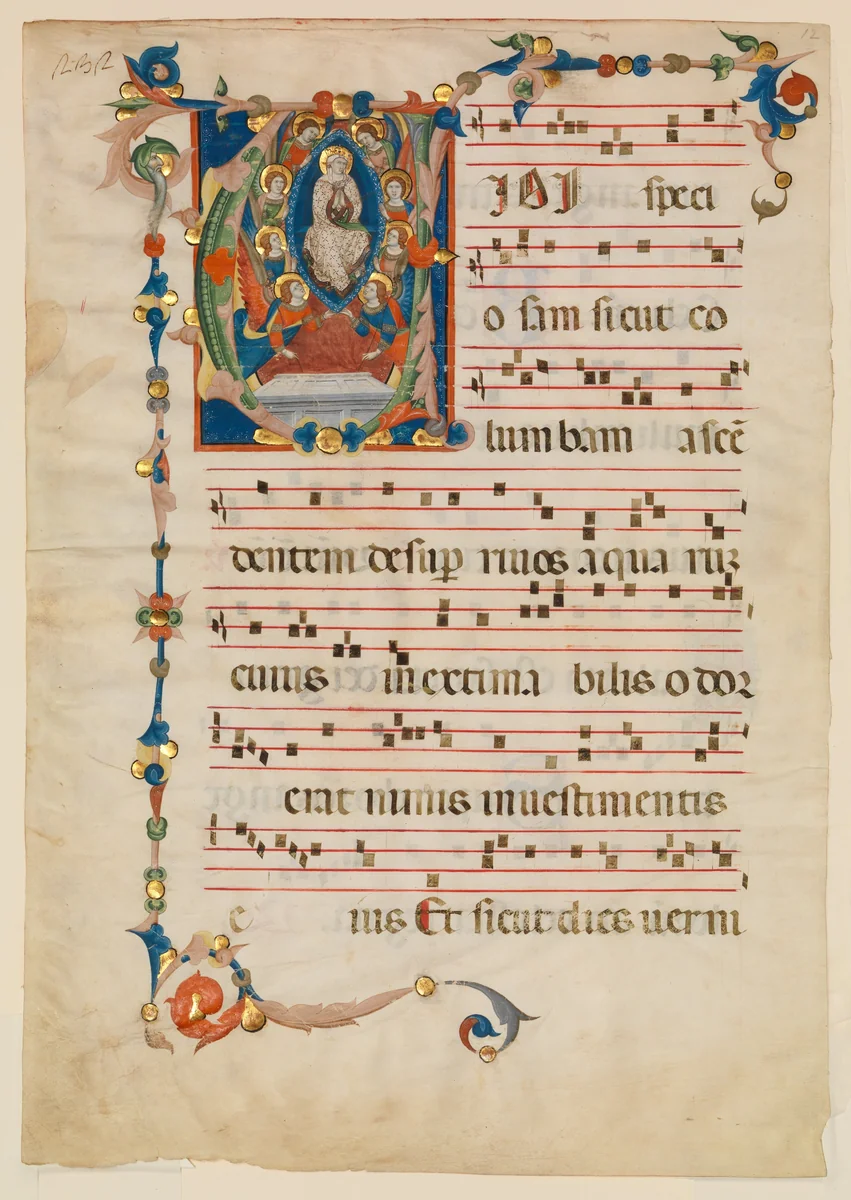 12
VIDI speci
o sam sicut co
lum bam ascē
dentem desup rivos aqua ruz
cuius in extima bilis o dor
erat nimis in vestimentis
e ius Et sicut dies verni